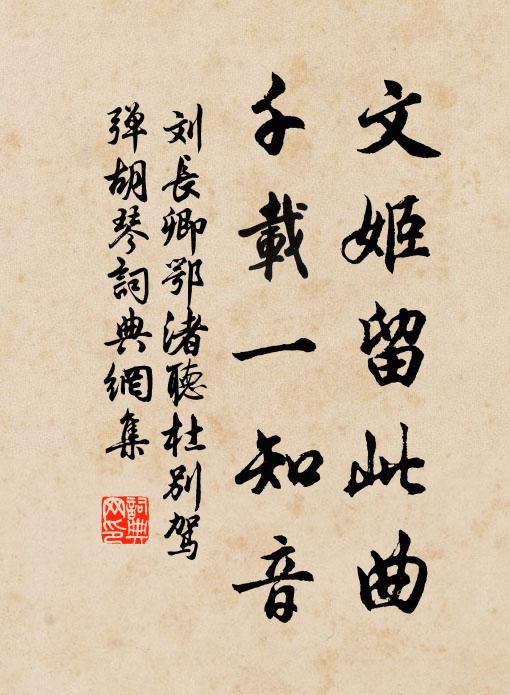 文姬留此曲
千載一知音
刘長卿鄂渚聽杜别駕
弹胡琴詞典網集
詞典
网印